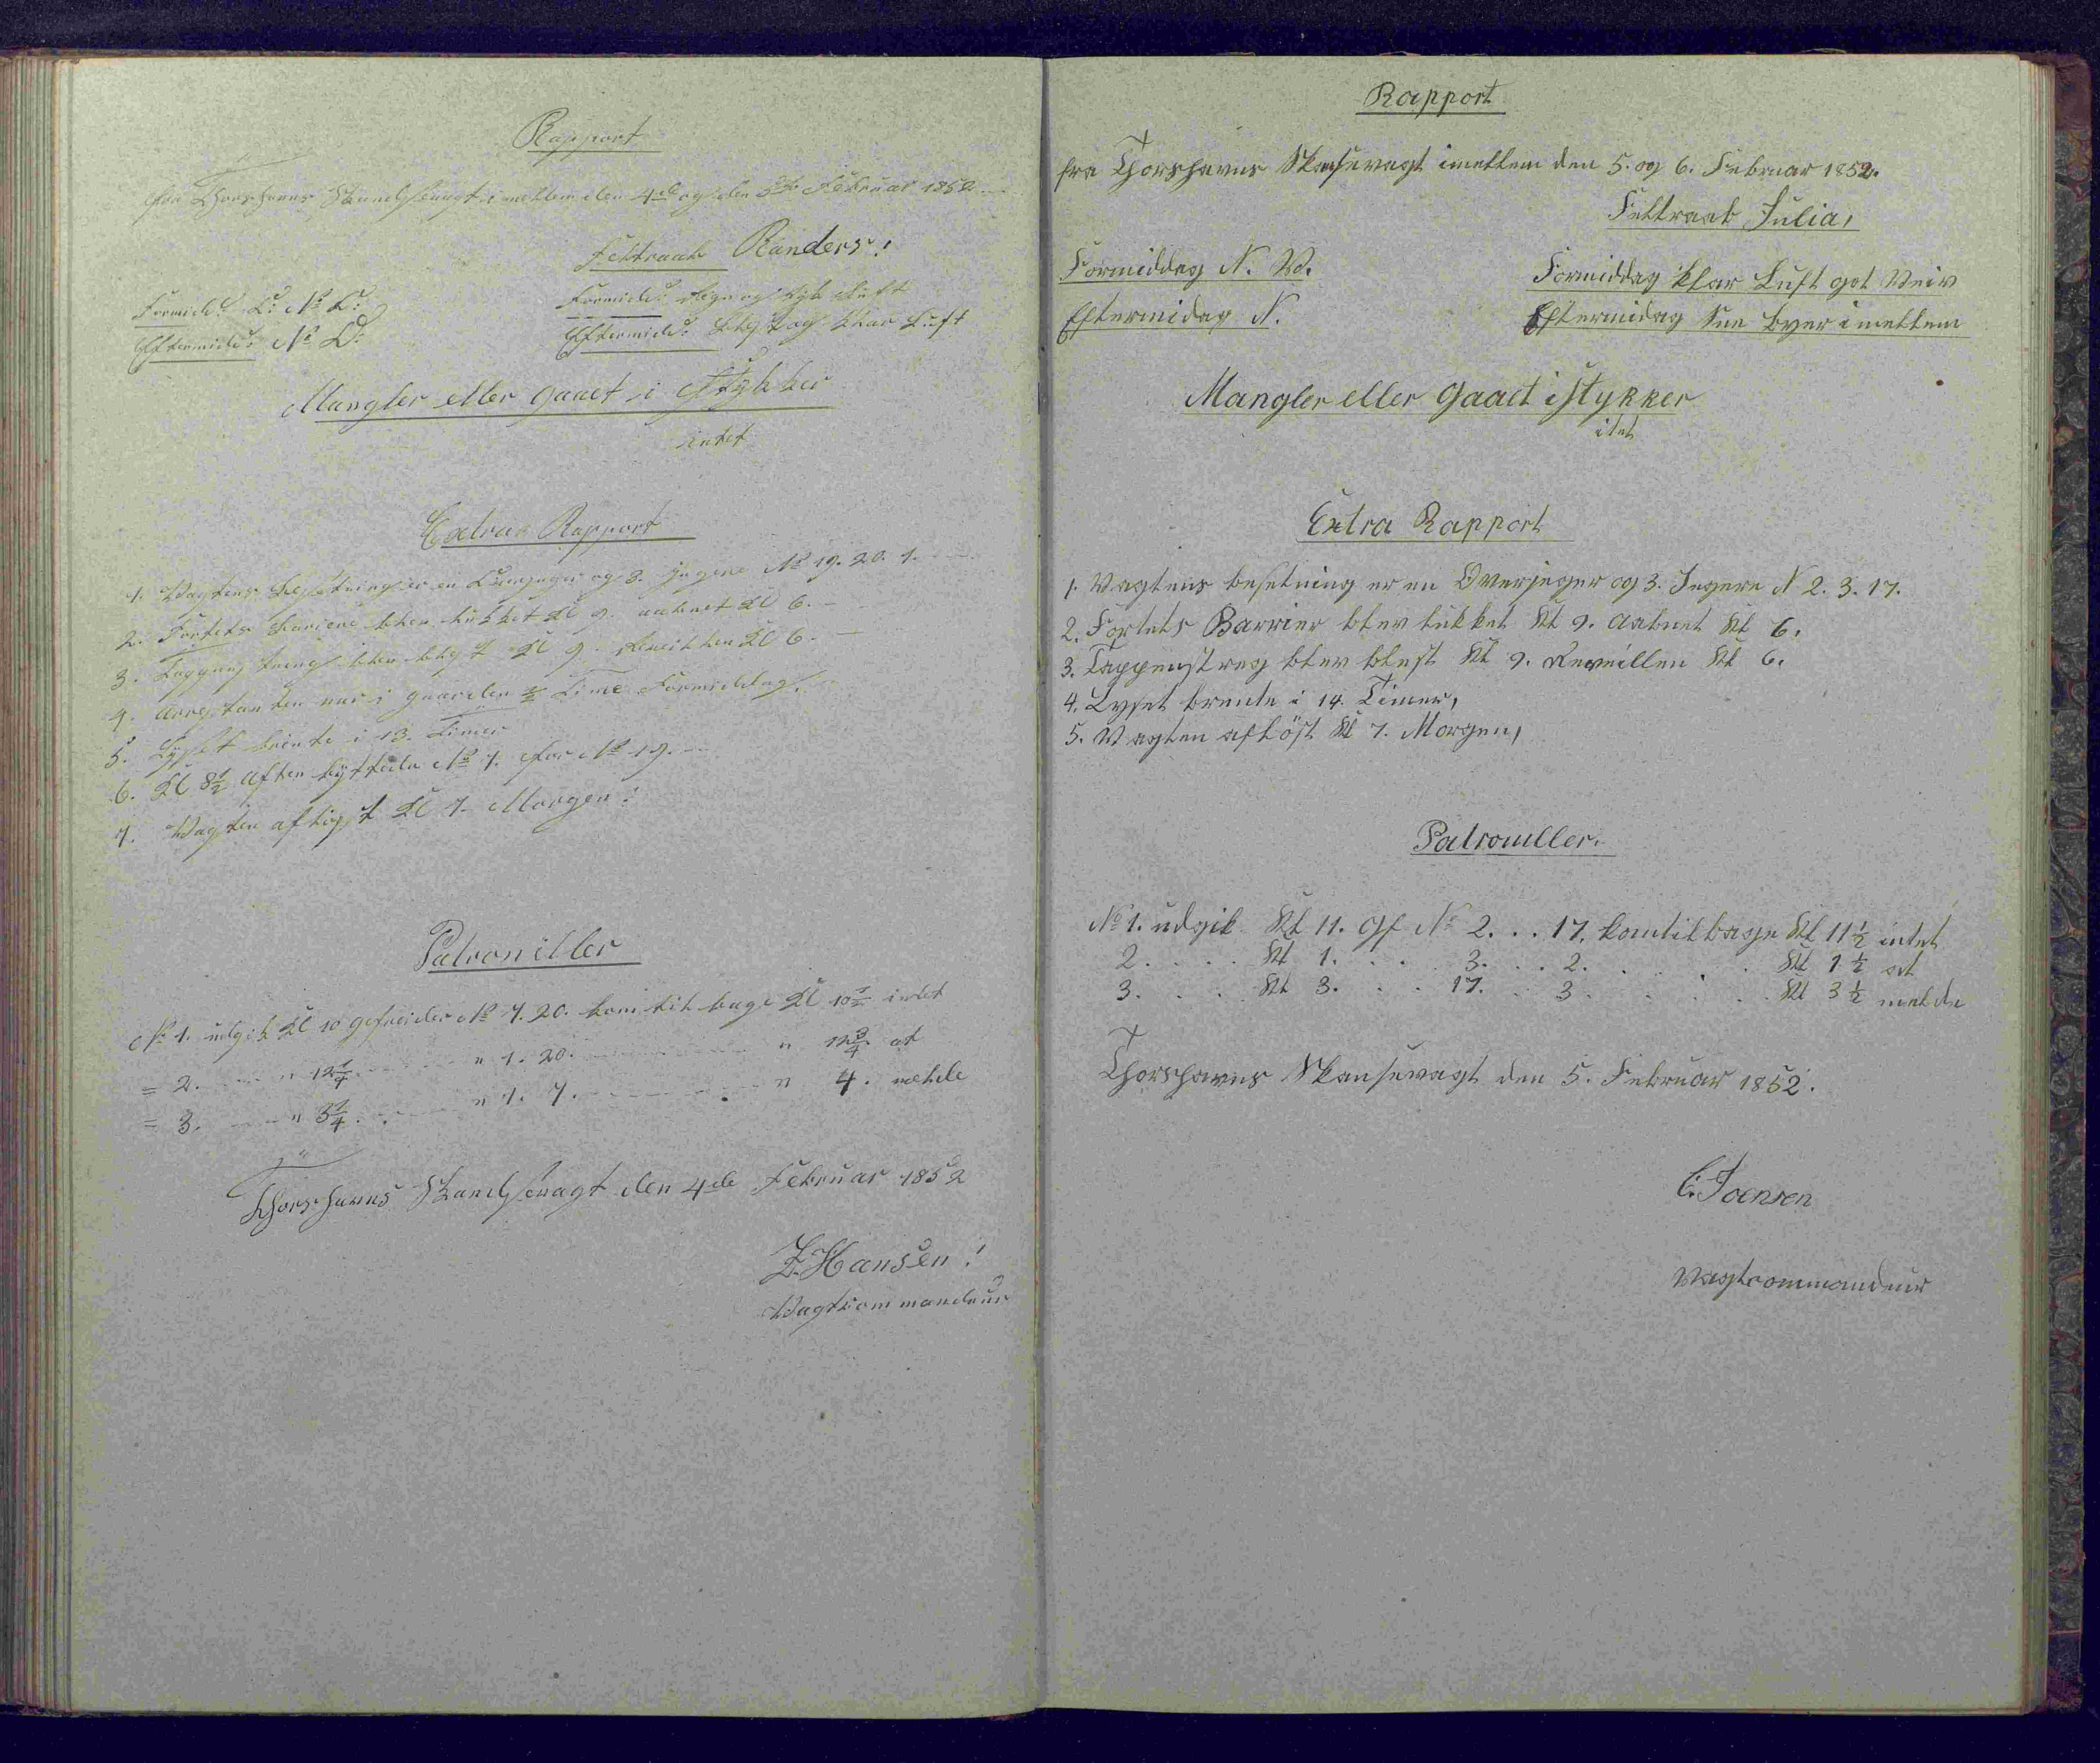 Rapport
fra Thorshavns Skandsevagt imellem den 4de og den 5te Februar 1852
Feltraab Randers!
Formidd: O: N: O:
Eftermidd: N: O:
Formidd: Regn og tyk Luft
Eftermidd: blæst og klar Luft
Mangler eller gaaet i Stykker
intet
Extra Rapport
1. Vagtens Besætning er en Overjæger og 3. Jægere No 19. 20. 1.
2. Fortets Bariere blev lukket Kl 9. aabnet Kl 6.
3. Tappenstreng blev blæst Kl 9. Reveillen Kl 6.
4. Arrestanten var i gaarden ½ Time Formiddag.
5. Lyset brænte i 13. Timer
6. Kl 8½ Aften byttede No 7. for No 19.
7. Vagten afløst Kl 7. Morgen!
Patrouiller
No 1. udgik Kl 10 Gefreider No 7. 20. kom tilbage Kl 10½ intet
= 2. " 12¼ " 1. 20. " 12¾ at
= 3. " 3¼ " 1. 7. " 4. melde
Thorshavns Skandsevagt den 4de Februar 1852
Z. Hansen!
Vagtcommandeur
Rapport
fra Thorshavns Skansevagt imellem den 5. og 6. Februar 1852.
Feltraab Julia,
Formiddag N. W.
Eftermidag N.
Formiddag klar Luft got Veir
Eftermidag Sne byer imellem
Mangler eller Gaaet i Stykker
itet
Extra Rapport
1. Vagtens besetning er en Overjeger og 3. Jegere N 2. 3. 17.
2. Fortets Barrier blev lukket Kl 9. Aabnet Kl 6.
3. Tappenstreg blev blest Kl 9. Reveillen Kl 6.
4. Lyset brente i 14. Timer,
5. Vagten afløst Kl 7. Morgen,
Patrouller.
No 1. udgik Kl 11. Gf No 2. . . 17. kom tilbage Kl 11½ intet
2. . . . . Kl 1. . . . 3. . . 2. . . . . Kl 1½ at
3. . . . Kl 3. . . 17. . . 3 . . . . . Kl 3½ melde
Thorshavns Skansevagt den 5. Februar 1852.
C. Joensen
Vagtcommandeur